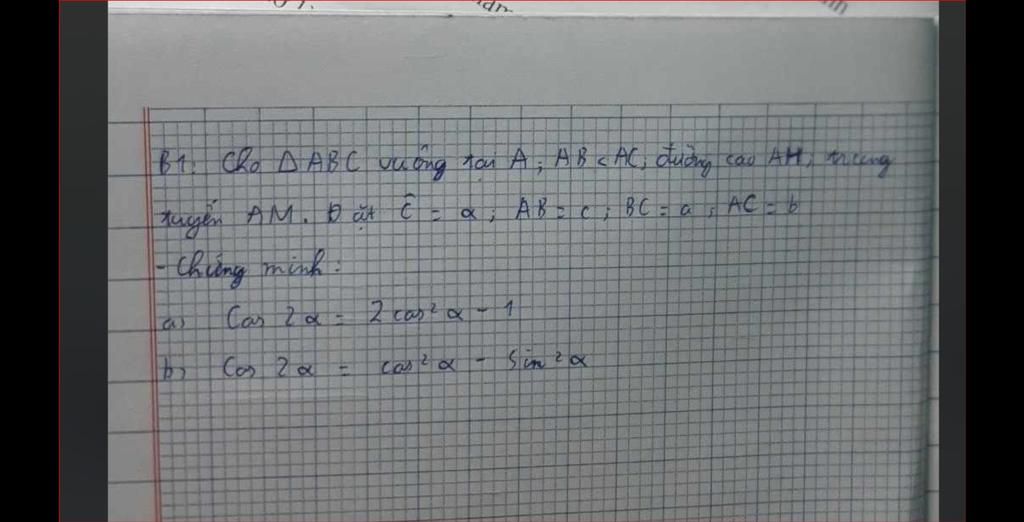 B1: Cho Δ ABC vuông tại A; AB < AC; đường cao AH, trung
tuyến AM. Đặt Ĉ = α; AB = c; BC = a; AC = b
- Chứng minh:
a) Cos 2α = 2cos² α - 1
b) Cos 2α = cos² α - Sin² α